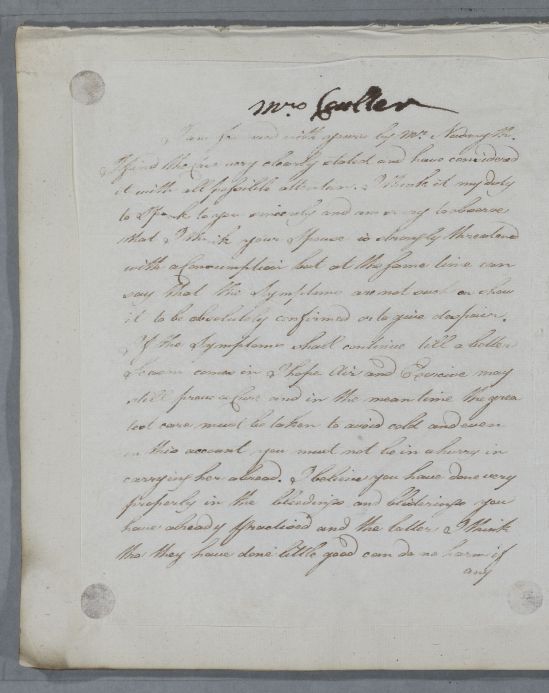 Mrs Coulter
I am favored with yours by Mr.
I find the Case very clearly stated and have considered
it with all possible attention. I think it my duty
to Speak to you sincerely and am sorry to observe
that I think your Spouse is strongly threatened
with a Consumption but at the same time can
say that the Symptoms are not such as show
it to be absolutely confirmed or to give despair.
If the Symptoms shall continue till a better
Season comes in I hope Air and Exercise may
still prove a Cure and in the mean time the grea
test care must be taken to avoid cold and even
on this account you must not be in a hurry in
carrying her abroad. I believe you have done very
properly in the bleedings and blisterings you
have already practised and the latter I think
tho they have done little good can do no harm if
any